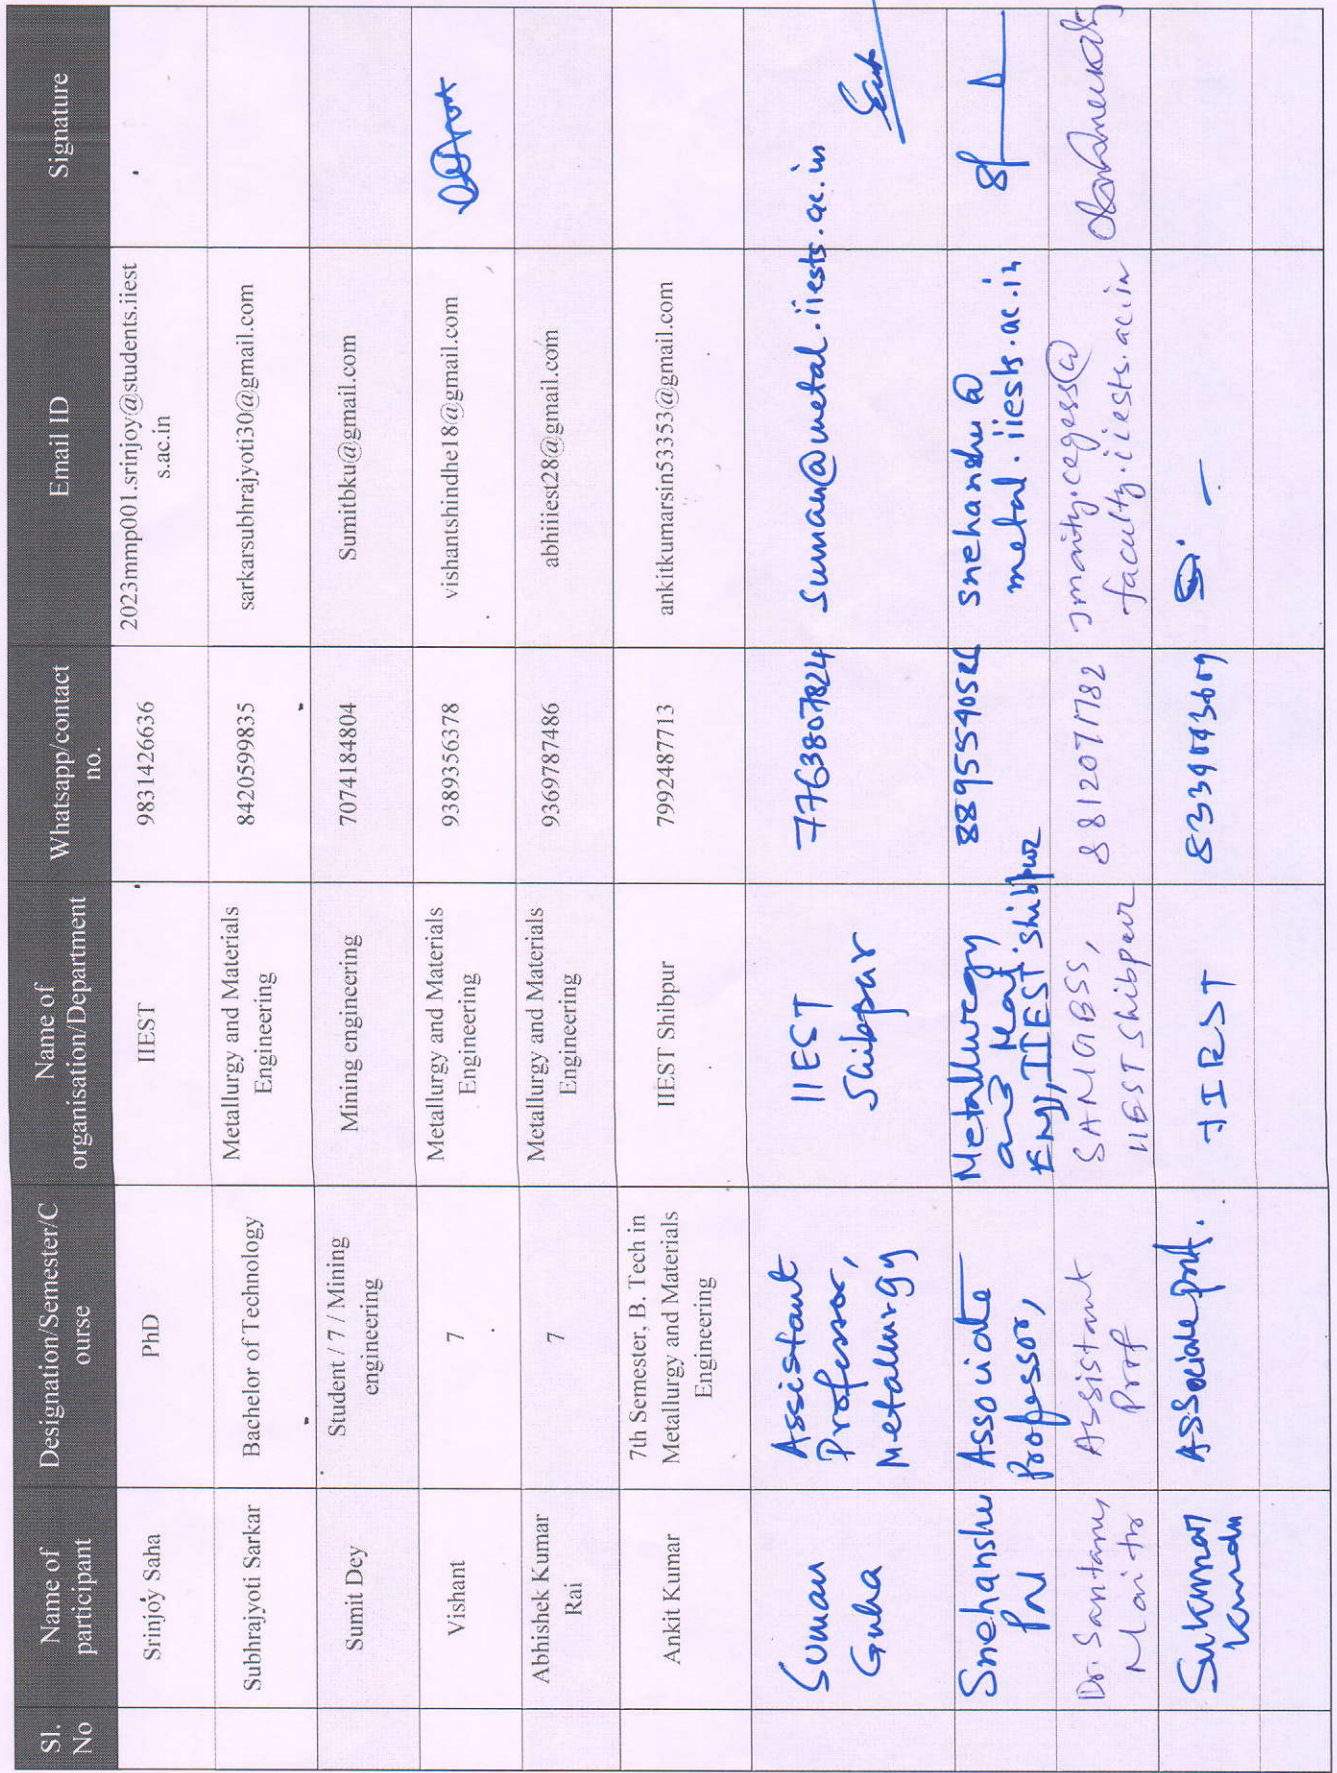 Sl. No
Name of participant
Designation/Semester/C ourse
Name of organisation/Department
Whatsapp/contact no.
Email ID
Signature
Srinjoy Saha
PhD
IIEST
9831426636
2023mmp001.srinjoy@students.iiest
s.ac.in
Subhrajyoti Sarkar
Bachelor of Technology
Metallurgy and Materials
Engineering
8420599835
sarkarsubhrajyoti30@gmail.com
Sumit Dey
Student / 7 / Mining
engineering
Mining engineering
7074184804
Sumitbku@gmail.com
Vishant
7
Metallurgy and Materials
Engineering
9389356378
vishantshindhe18@gmail.com
Abhishek Kumar
Rai
7
Metallurgy and Materials
Engineering
9369787486
abhiiiest28@gmail.com
Ankit Kumar
7th Semester, B. Tech in
Metallurgy and Materials
Engineering
IIEST Shibpur
7992487713
ankitkumarsin53353@gmail.com
Suman
Guha
Assistant
Professor,
Metallurgy
IIEST
Shibpur
7763807824
suman@metal.iiests.ac.in
Snehanshu
Pal
Associate
Professor,
Metallurgy
and Mat.
Eng, IIEST Shibpur
snehanshu@
metal.iiests.ac.in
Dr. Santanu
Maity
Assistant
Prof
IIEST Shibpur
smaity.cegess@
faculty.iiests.ac.in
Sukumar
Kundu
Associate Prof.